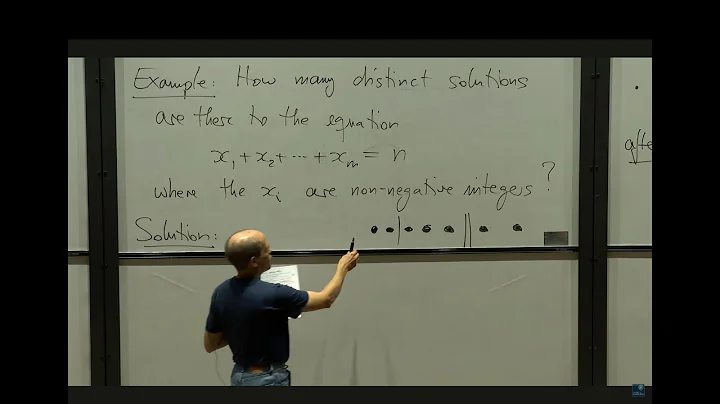 Example: How many distinct solutions
are there to the equation
x₁ + x₂ + ... + xₘ = n
where the xᵢ are non-negative integers ?
Solution:
afte